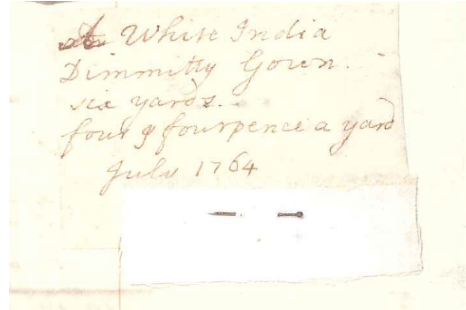 A White India
Dimmitty Gown.
six yards.
four & fourpence a yard
July 1764